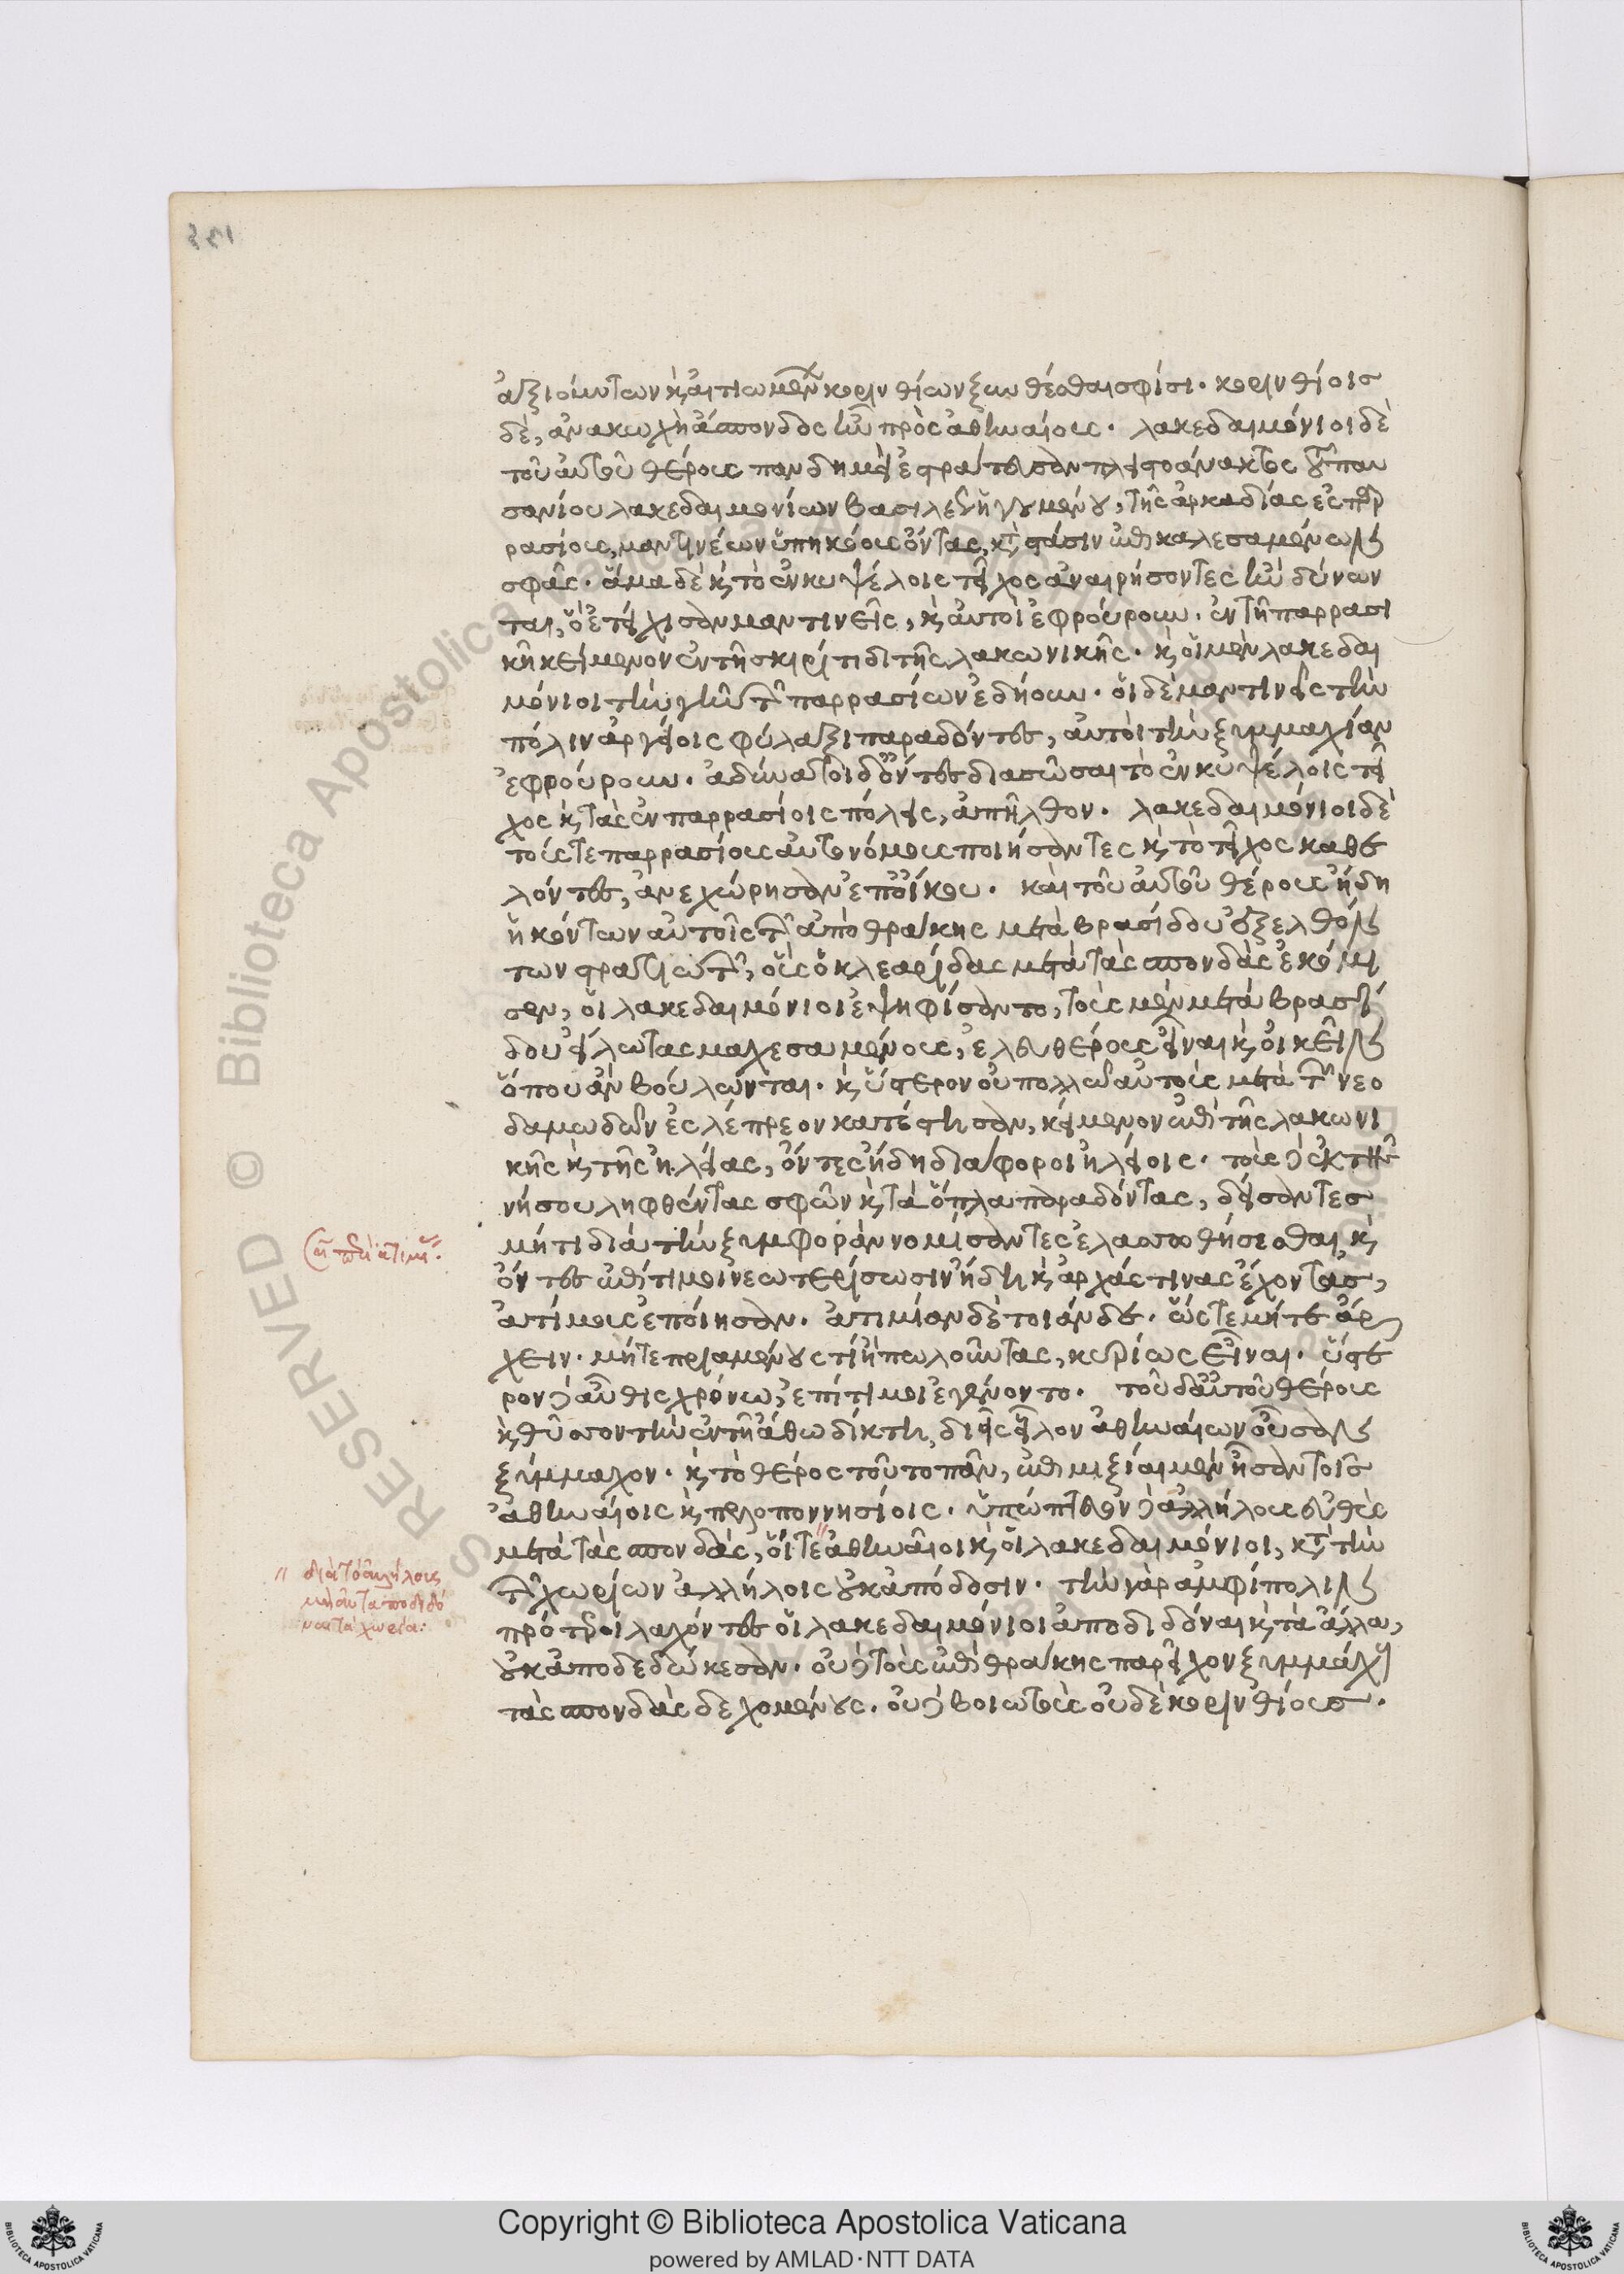 ἀξιούντων κ̀ αἰτιωμένων κορινθίων ξυνθέσθαι σφίσι. κορινθίοις
δὲ, ἀνακωχὴ ἄσπονδος ἦν πρὸς ἀθηναίους. λακεδαιμόνιοι δὲ
τοῦ αὐτοῦ θέρους πανδημεὶ ἐστράτευσαν πλειστοάνακτος τοῦ παυ
σανίου λακεδαιμονίων βασιλέως ἡγουμένου, τῆς ἀρκαδίας ἐς παρ
ρασίους, μαντινέων ὑπηκόους ὄντας, κατὰ στάσιν ἐπικαλεσαμένων
σφᾶς. ἅμα δὲ κ̀ τὸ ἐν κυψέλοις τεῖχος ἀναιρήσοντες ἢν δύνων
ται, ὃ ἐτείχισαν μαντινεῖς, κ̀ αὐτοὶ ἐφρούρουν. ἐν τῆ παρρασι
κῆ κείμενον ἐν τῆ σκιρίτιδι τῆς λακωνικῆς. κ̀ οἱ μὲν λακεδαι
μόνιοι τὴν γῆν τῶν παρρασίων ἐδήουν. οἱ δὲ μαντινεῖς τὴν
πόλιν ἀργείοις φύλαξι παραδόντες, αὐτοὶ τὴν ξυμμαχίαν
ἐφρούρουν. ἀδύνατοι δ' ὄντες διασῶσαι τὸ ἐν κυψέλοις τεῖ
χος κ̀ τὰς ἐν παρρασίοις πόλεις, ἀπῆλθον. λακεδαιμόνιοι δὲ
τούς τε παρρασίους αὐτονόμους ποιήσαντες κ̀ τὸ τεῖχος καθε
λόντες, ἀνεχώρησαν ἐπ' οἴκου. καὶ τοῦ αὐτοῦ θέρους ἤδη
ἡκόντων αὐτοῖς τῶν ἀπὸ θράκης μετὰ βρασίδου ἐξελθόν
των στρατιωτῶν, οὓς ὁ κλεαρίδας μετὰ τὰς σπονδὰς ἐκόμι
σεν, οἱ λακεδαιμόνιοι ἐψηφίσαντο, τοὺς μὲν μετὰ βρασί
δου εἵλωτας μαχεσαμένους, ἐλευθέρους εἶναι κ̀ οἰκεῖν
ὅπου ἂν βούλωνται. κ̀ ὕστερον οὐ πολλῶ αὐτοὺς μετὰ τῶν νεο
δαμωδῶν ἐς λέπρεον κατέστησαν, κείμενον ἐπὶ τῆς λακωνι
κῆς κ̀ τῆς ἠλείας, ὄντες ἤδη διάφοροι ἠλείοις. τοὺς δὲ ἐκ τῆς
νήσου ληφθέντας σφῶν κ̀ τὰ ὅπλα παραδόντας, δείσαντες
μή τι διὰ τὴν ξυμφορὰν νομίσαντες ἐλασσωθήσεσθαι, κ̀
ὄντες ἐπίτιμοι νεωτερίσωσιν ἤδη κ̀ ἀρχάς τινας ἔχοντας,
ἀτίμους ἐποίησαν. ἀτιμίαν δὲ τοιάνδε. ὥστε μήτε ἄρ
χειν. μήτε πριαμένους τὶ ἢ πωλοῦντας, κυρίως εἶναι. ὕστε
ρον δὲ αὖθις χρόνω, ἐπίτιμοι ἐγένοντο. τοῦ δ' αὐτοῦ θέρους
κ̀ θύσσον τὴν ἐν τῆ ἄθω δίκτη, διῆς εἷλον ἀθηναίων οὖσαν
ξύμμαχον. κ̀ τὸ θέρος τοῦτο πᾶν, ἐπιμιξίαι μὲν ἦσαν τοῖς
ἀθηναίοις κ̀ πελοποννησίοις. ὑπώπτευον δὲ ἀλλήλους εὐθὺς
μετὰ τὰς σπονδὰς, οἵ τε ἀθηναῖοι κ̀ οἱ λακεδαιμόνιοι, κατὰ τὴν
τῶν χωρίων ἀλλήλοις οὐκ ἀπόδοσιν. τὴν γὰρ ἀμφίπολιν
πρότεροι λαχόντες οἱ λακεδαιμόνιοι ἀποδιδόναι κ̀ τὰ ἄλλα,
οὐκ ἀποδεδώκεσαν. οὐδὲ τοὺς ἐπὶ θράκης παρεῖχον ξυμμάχους
τὰς σπονδὰς δεχομένους. οὐδὲ βοιωτοὺς οὐδὲ κορινθίους.
// διὰ τὸ ἀλλήλοις
μὴ ἀνταποδιδό
ναι τὰ χωρία:
Copyright © Biblioteca Apostolica Vaticana
powered by AMLAD·NTT DATA